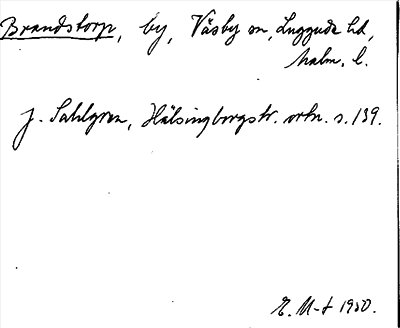 Brandstorp, by, Väsby sn, Luggude hd,
malm. l.
J. Sahlgren, Hälsingborgstr. ortn. s. 139.
E. M-t 1930.